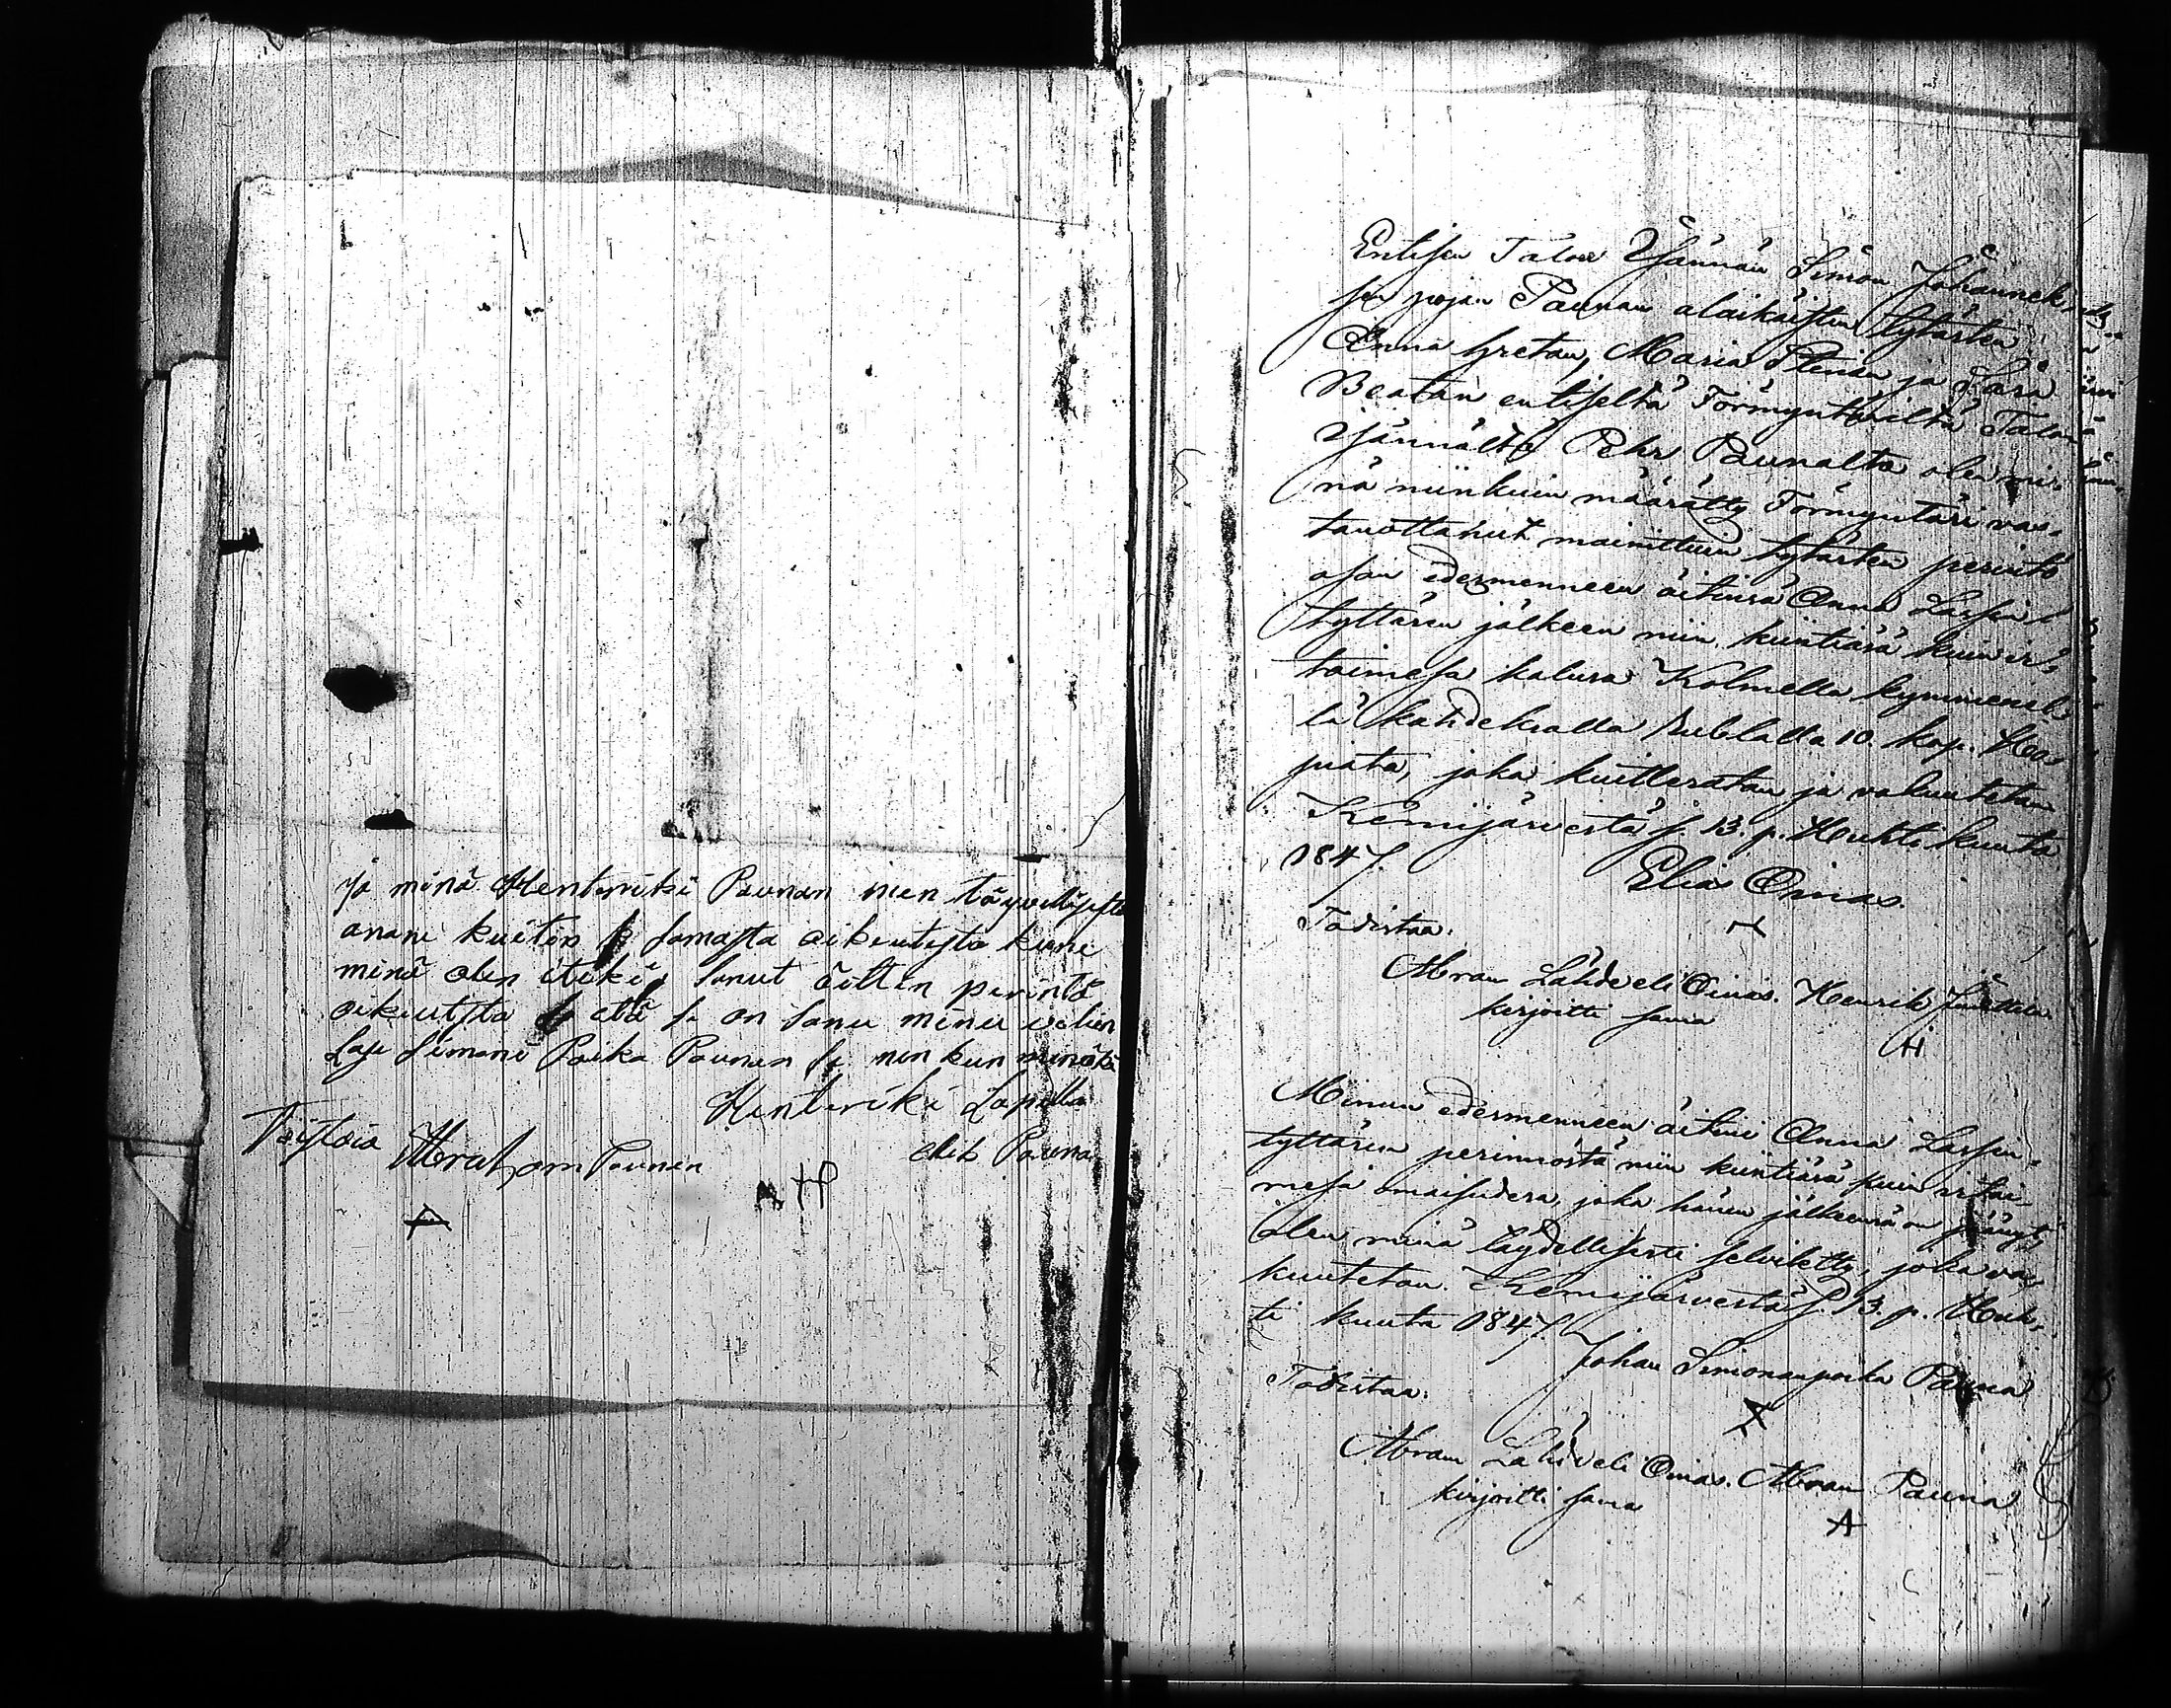 ja minä Henterikki Paunan nen täyvellisestä
anani kuiton samasta oikeutesta kuni
minä olen itteki sanut äitin perintö
oikeutesta että se on sanu minu velien
Lasi Simoni Poika Paunan se nen kun minäki
Hinteriki Lapilla
elik Pauna
Töistaa Abraham Paunan
A HP
Entisen Talon Isännän Simon Johannek-
sen pojan Paunan alaikäisten tytärten
Anna Gretan, Maria Stinan ja Sara
Beatan entiseltä Förmyntäriltä Talon
Isännältä Pehr Paunalta olen mi-
nä niinkuin määrätty Förmyntäri vas-
tanottanut mainittuin tytärten perintö
osan edesmenneen äitinsä Anna Lassin
tyttären jälkeen niin kiintiässä kuin ir-
toimessa kalussa Kolmella kymmenel-
lä kahdeksalla Rublalla 10. kop. Ho-
piata, joka kuitteratan ja vakuutetan
Kemijärvestä s. 13. p. Huhti kuuta
1847.
Elias Oinas.
Todistaa.
Abram Lahdeveli Oinas. Henrik
kirjoitti saman
H
Minun edesmenneen äitini Anna Lassin-
tyttären perinnöstä niin kiintiässä kuin irtai-
messa omaisudesa, joka hänen jälkeensä on jäänyt,
olen minä täydellisesti selvitetty, joka va-
kuutetan. Kemijärvestä s. 13. p. Huh-
ti kuuta 1847.
Johan Simonanpoika Pauna
Todistaa.
Abram Lahdeveli Oinas. Abram Pauna
kirjoitti saman
A